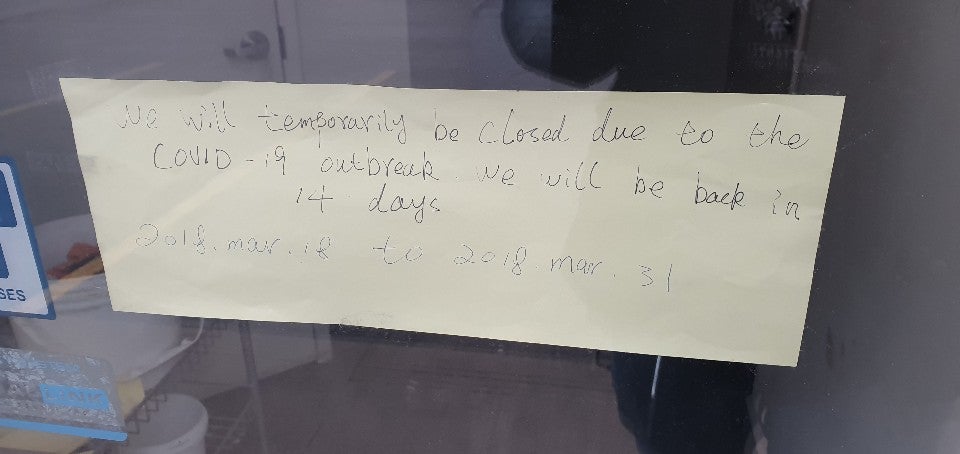 We will temporarily be closed due to the
COVID-19 outbreak. We will be back in
14 days
2018. mar. 18 to 2018. mar. 31
SES